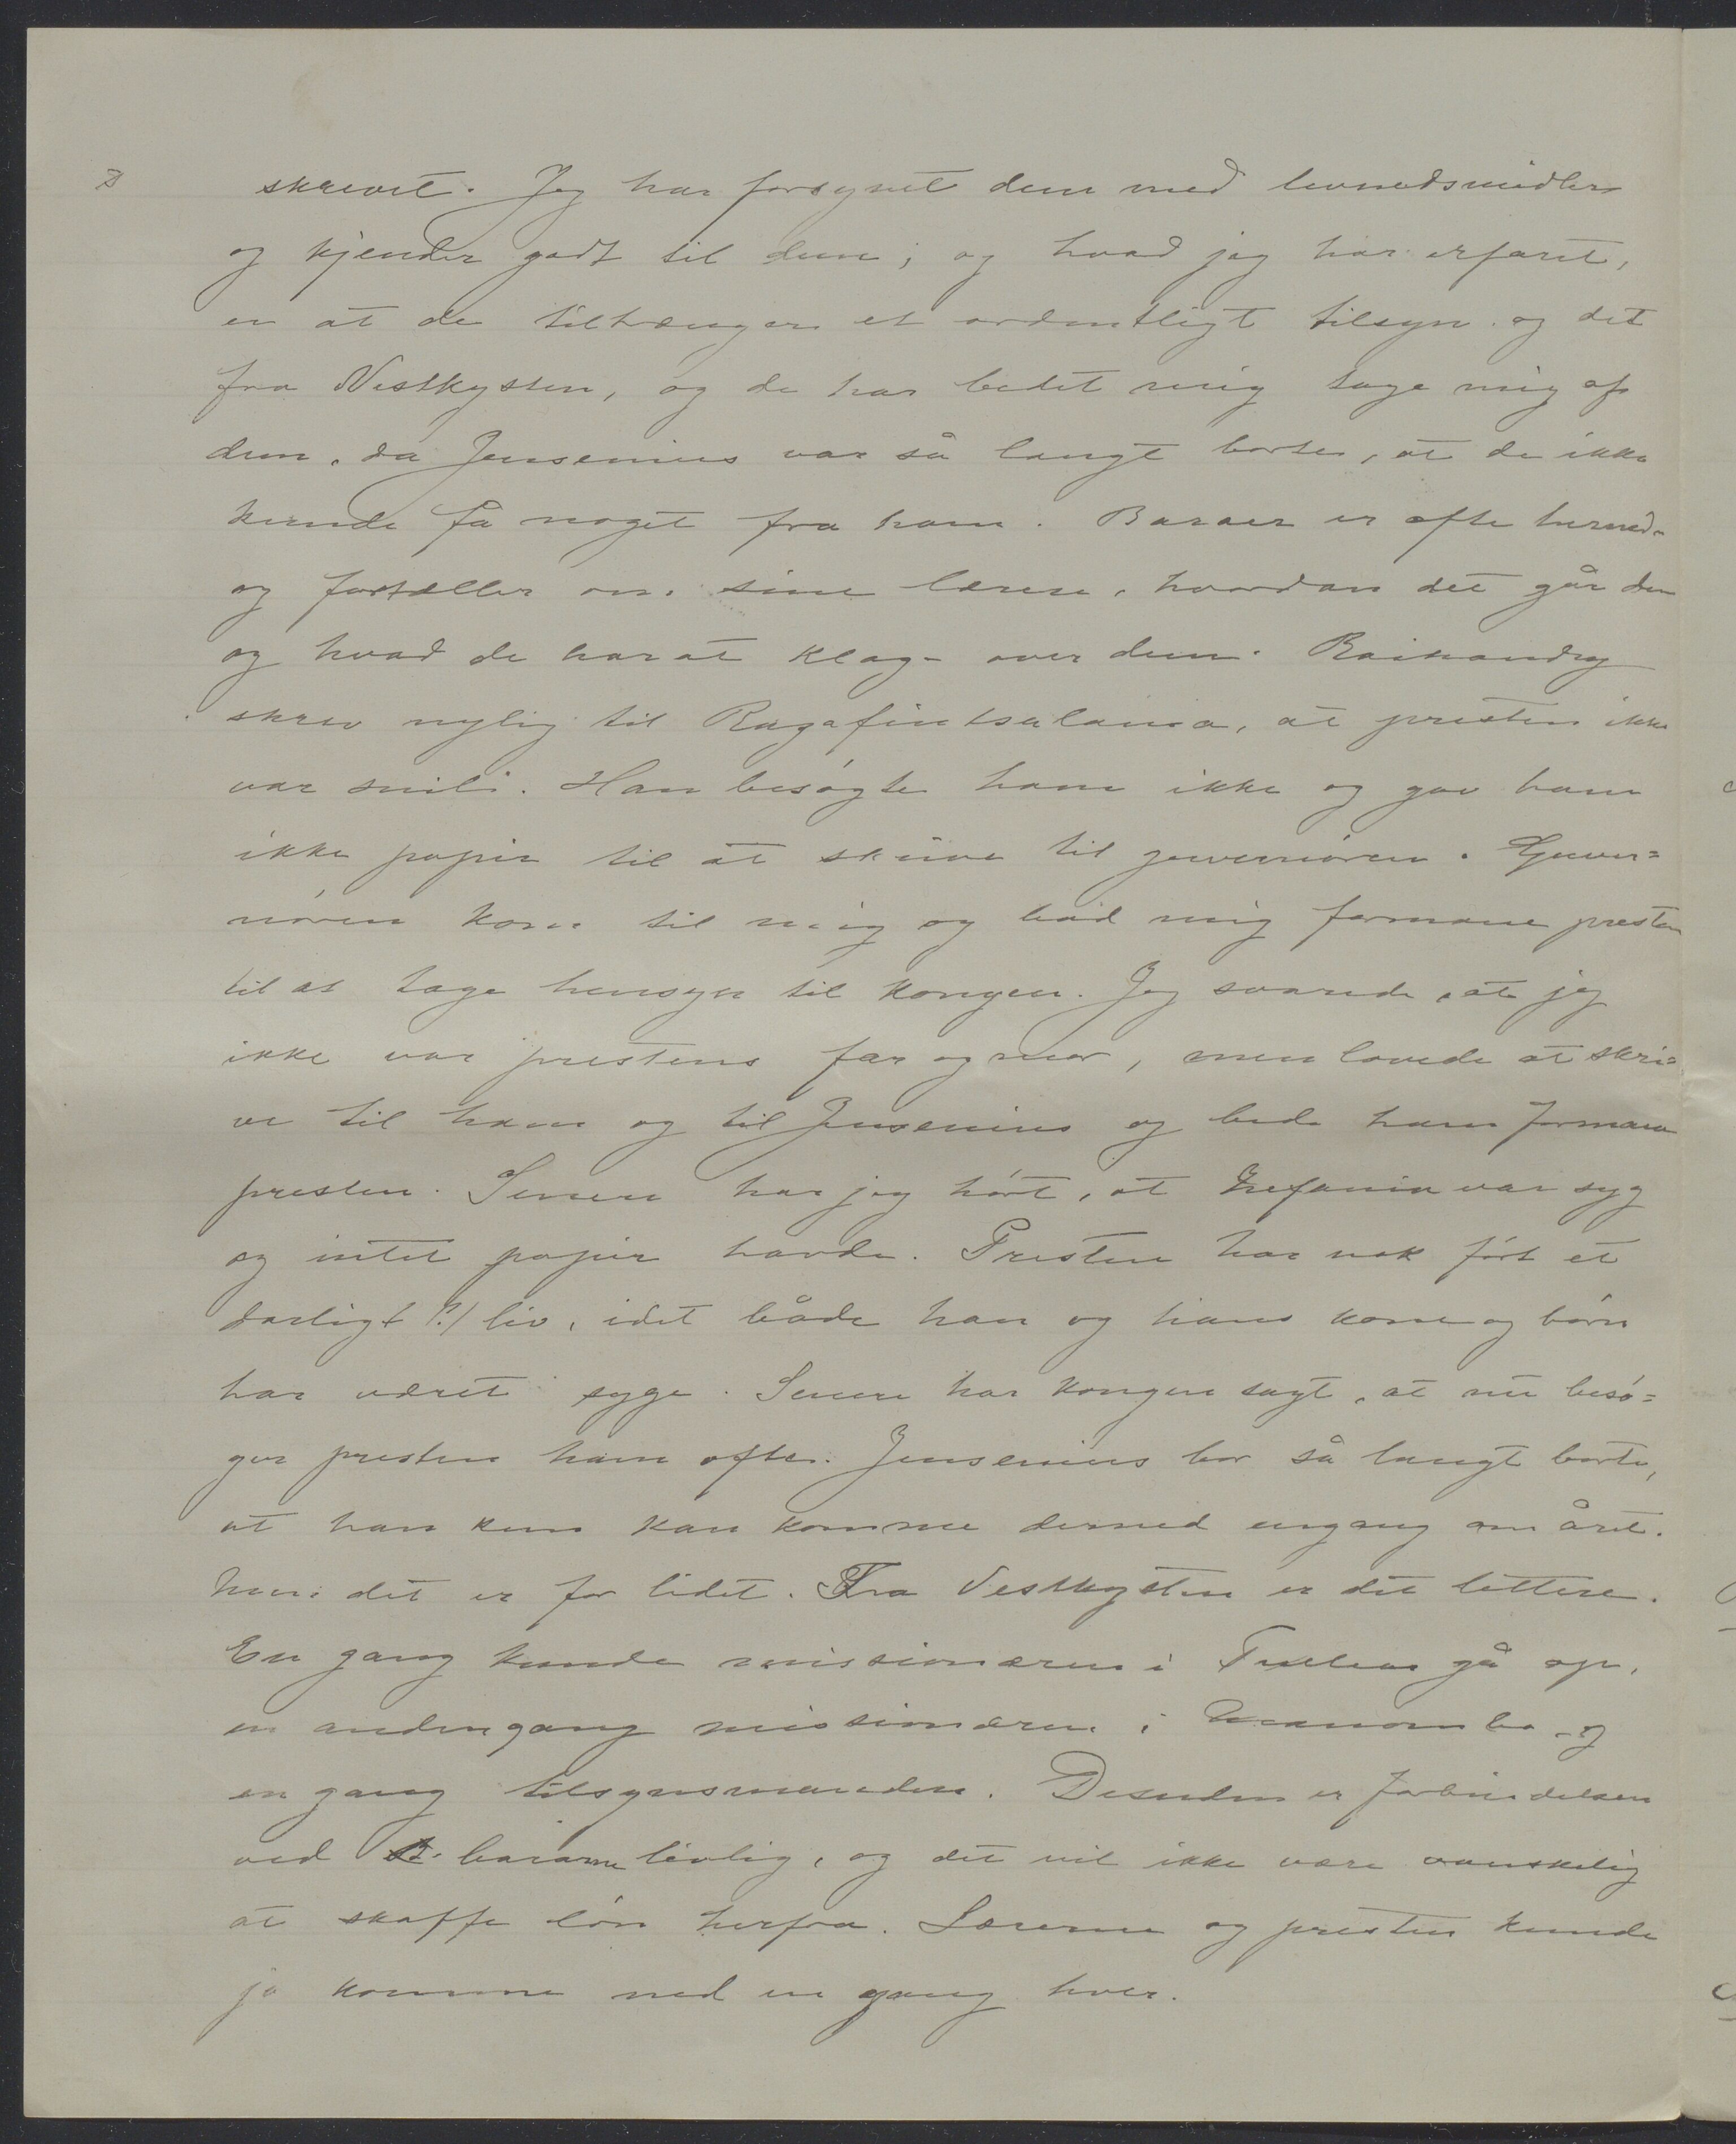 skrevet. Jeg har forsynet dem med levnedsmidler
og kjender godt til dem; og hvad jeg har erfaret,
er at de tiltrænger et ordentligt tilsyn og det
fra Vestkysten, og de har bedet mig tage mig af
dem, da Jensenius var så langt borte, at de ikke
kunde få noget fra ham. Baraer er ofte hernede
og fortæller om sine lærere, hvordan det går dem
og hvad de har at klage over dem. Raikandry
skrev nylig til Razafintsalama, at presten ikke
var snil. Han besøgte ham ikke og gav ham
ikke papir til at skrive til guvernøren. Guver=
nøren kom til mig og bad mig formane presten
til at tage hensyn til kongen. Jeg svarede, at jeg
ikke var prestens far og mor, men lovede at skri=
ve til ham og til Jensenius og bede ham formane
presten. Senere har jeg hørt, at Zefania var syg
og intet papir havde. Presten har nok ført et
dårligt (?) liv, idet både han og hans kone og børn
har været syge. Senere har kongen sagt, at nu besø=
ger presten ham ofte. Jensenius bor så langt borte,
at han kun kan komme derned engang om året.
men det er for lidet. Fra Vestkysten er det lettere.
En gang kunde missionæren i Tullear gå op,
en anden gang missionæren i Manombo og
en gang tilsynsmanden. Desuden er forbindelsen
ved bararne livlig, og det vil ikke være vanskelig
at skaffe løn herfra. Lærerne og presten kunde
jo komme ned en gang hver.